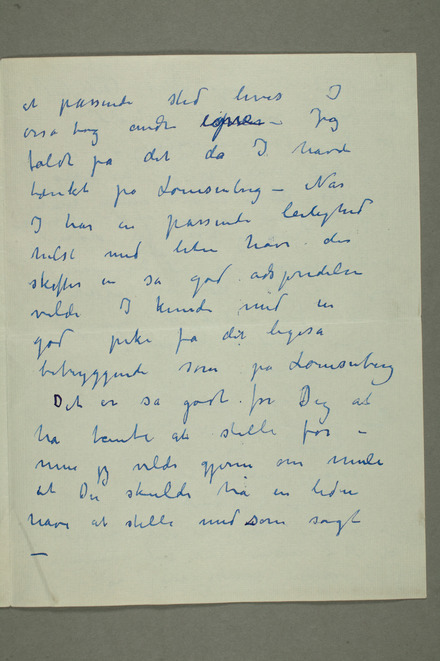 et passende sted hvis I
også tog andre – Jeg
faldt på det da I havde
tænkt på Louisenberg – Når
I har en passende leilighed
helst med liten have – der
skaffer en så god adspredelse
vilde I kunde med en
god pike få det ligeså
betryggende som på Louisenberg
Det er så godt for Dig at
ha hente at stelle for –
men jeg vilde gjerne om mule
at Du skulde ha en liden
have at stelle med som sagt
—